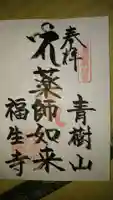 奉拝
青樹山
薬師如来
福生寺